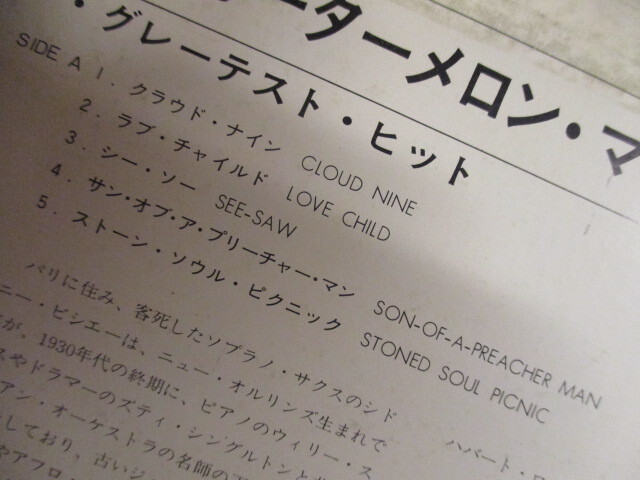 ーターメロン・マ
・グレーテスト・ヒット
SIDE A 1. クラウド・ナイン CLOUD NINE
2. ラブ・チャイルド LOVE CHILD
3. シー・ソー SEE-SAW
4. サン・オブ・ア・プリーチャー・マン SON-OF-A-PREACHER MAN
5. ストーン・ソウル・ピクニック STONED SOUL PICNIC
パリに住み、客死したソプラノ・サクスのシド
ニー・ビシエーは、ニュー・オルリンズ生まれで
が、1930年代の終期に、ピアノのウィリー・ス
スやドラマーのズティ・シングルトンと
アン・オーケストラの名師の
しており、古いジ
やアフロ
ハバート・ロ